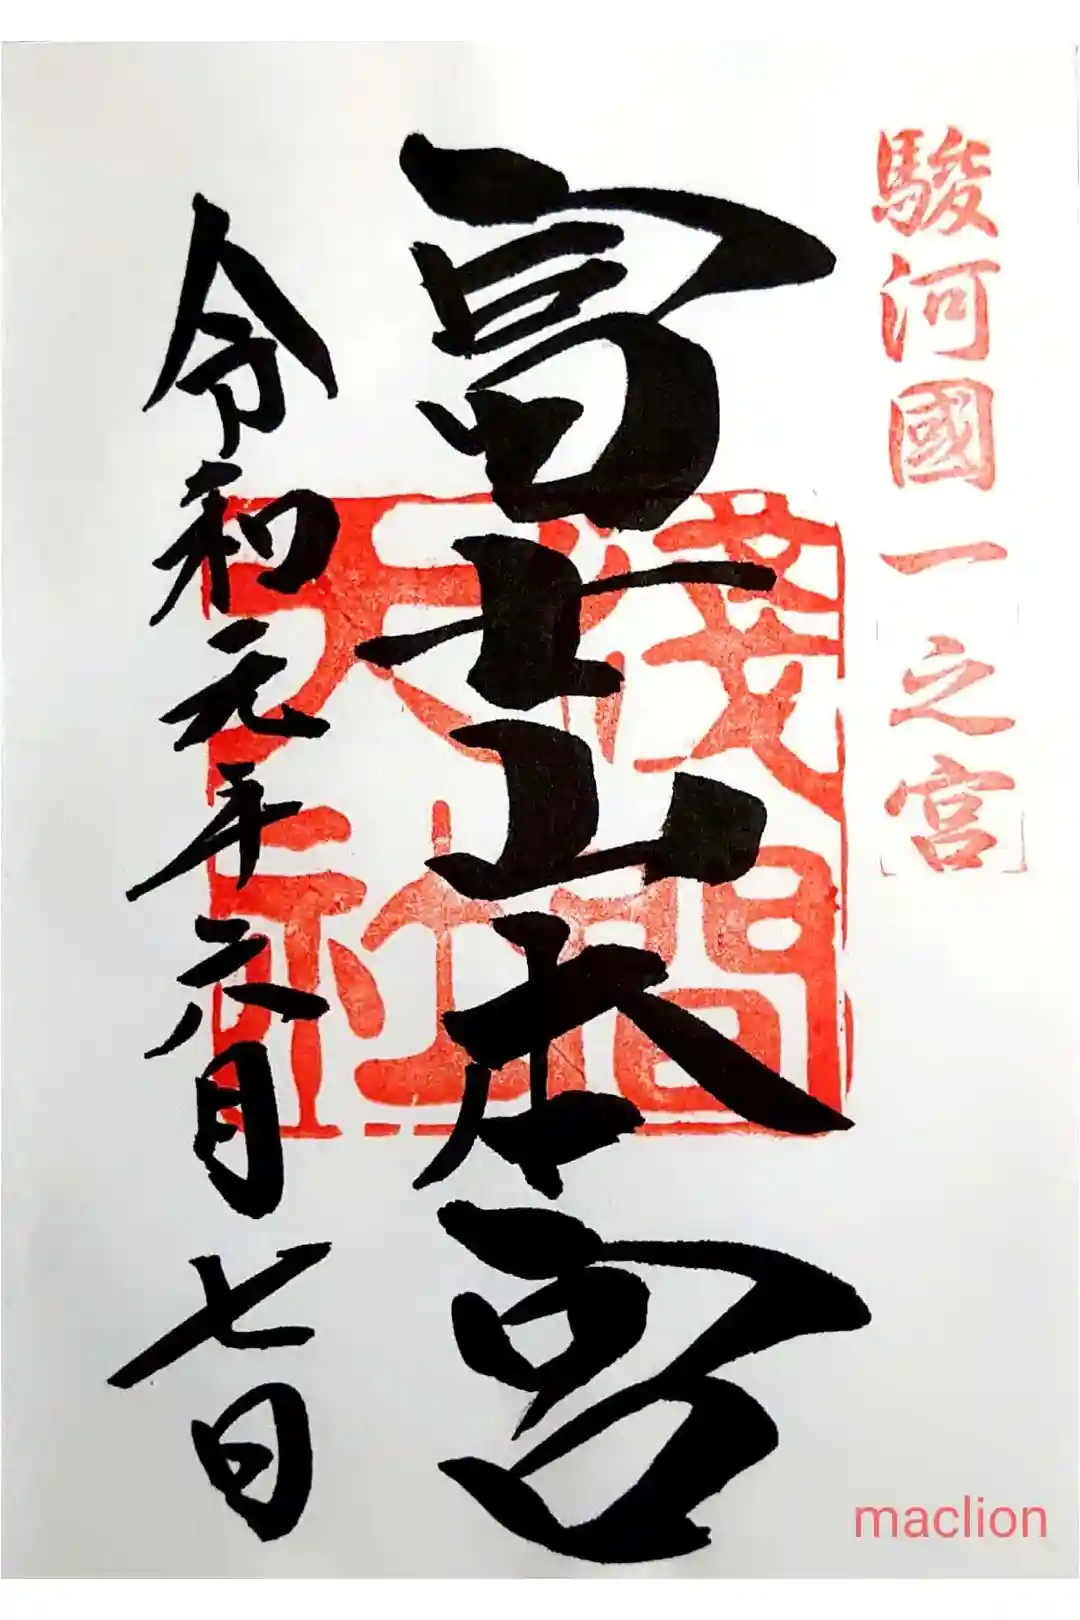 駿河國一之宮
冨士山本宮
淺間大社
令和元年六月七日
maclion